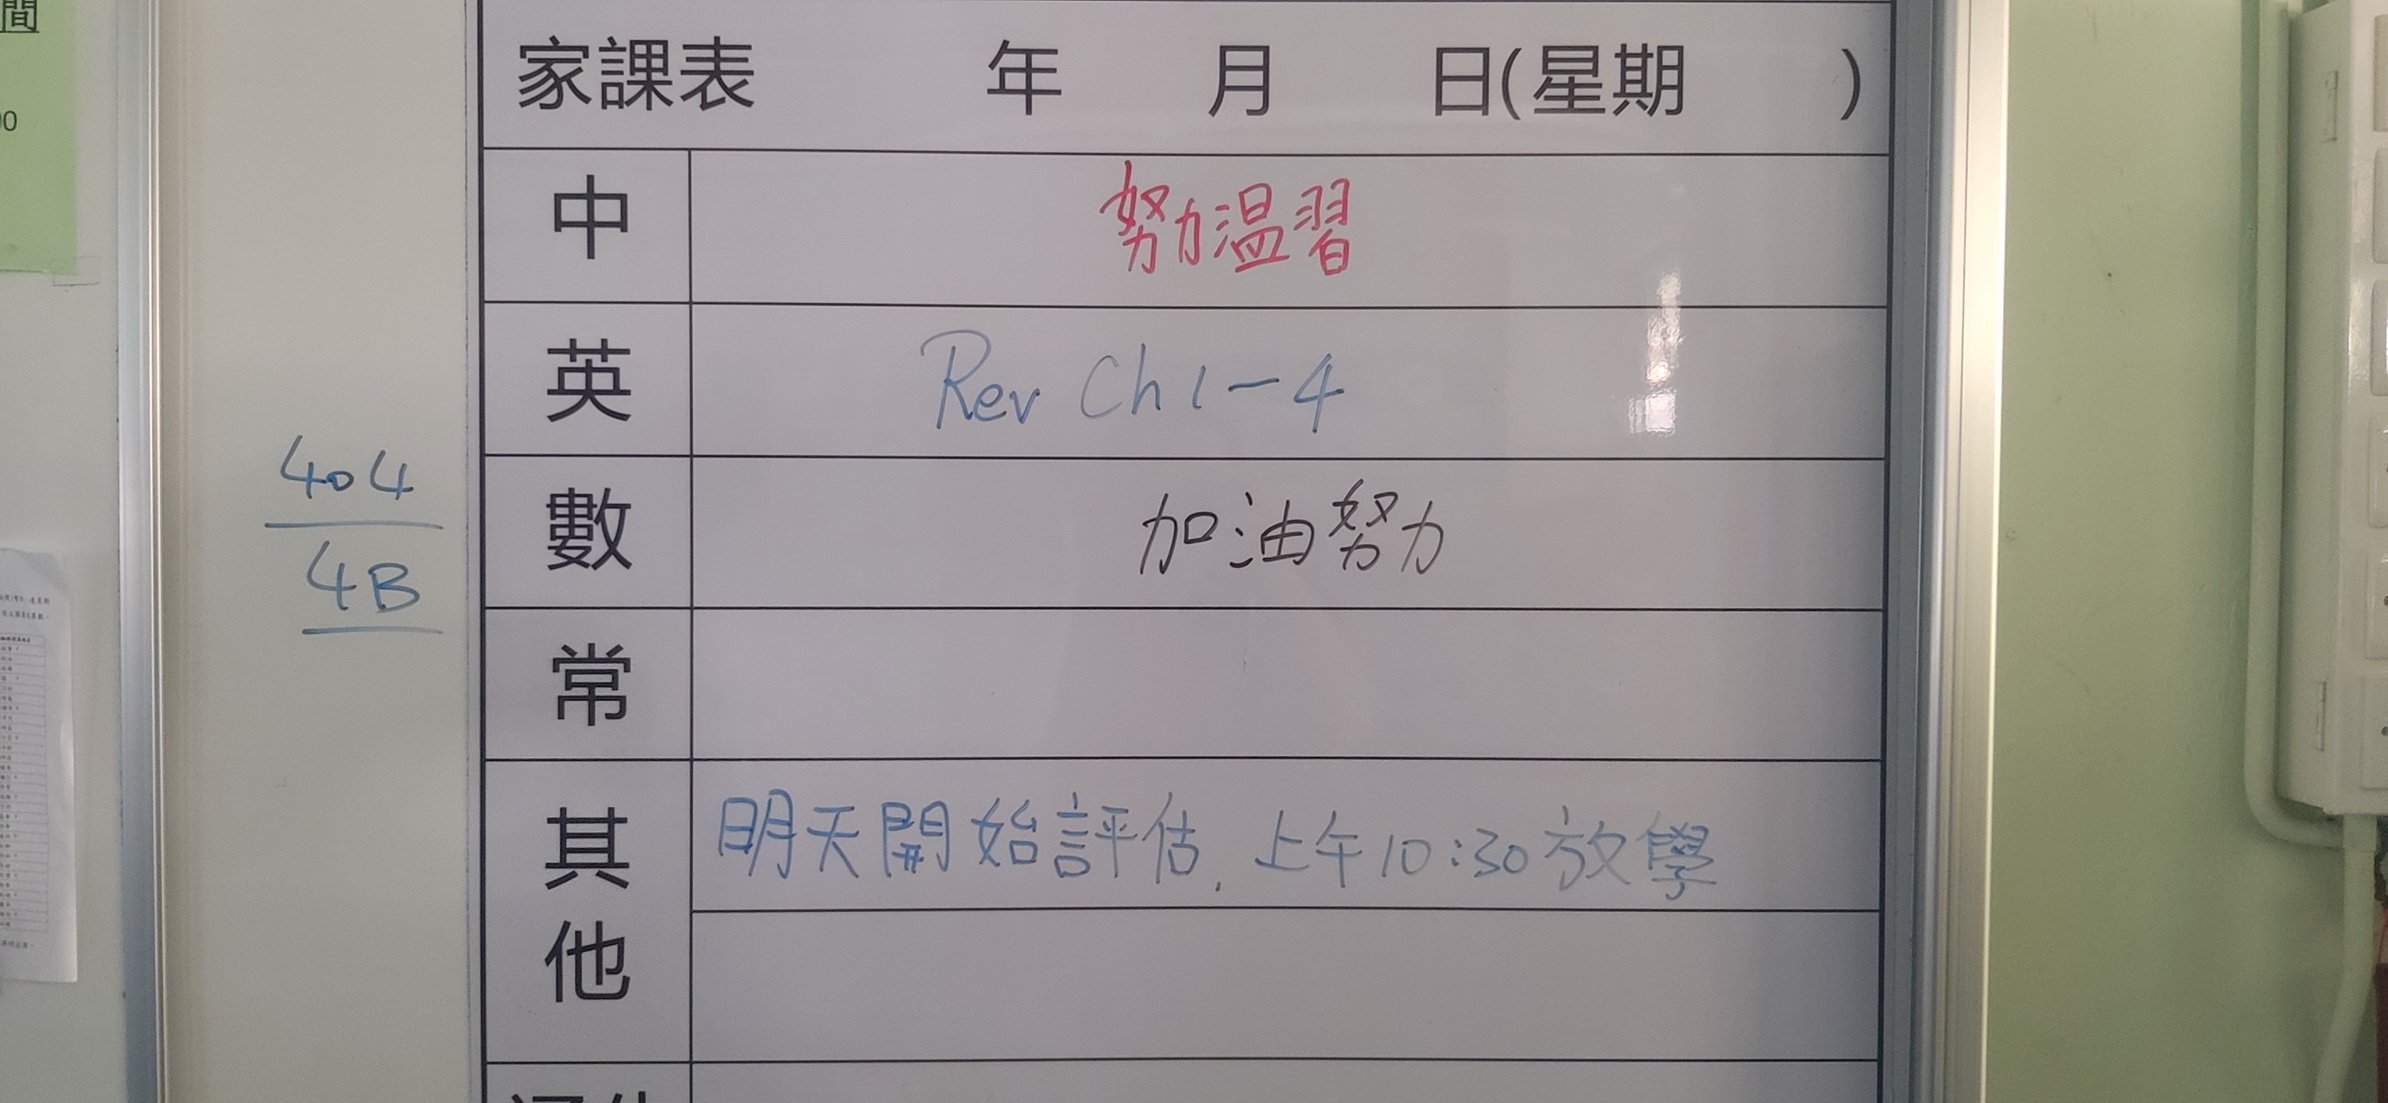 間
00
家課表 年 月 日(星期 )
中 努力温習
英 Rev Ch 1-4
404
4B
數 加油努力
常
其他 明天開始評估, 上午10:30放學